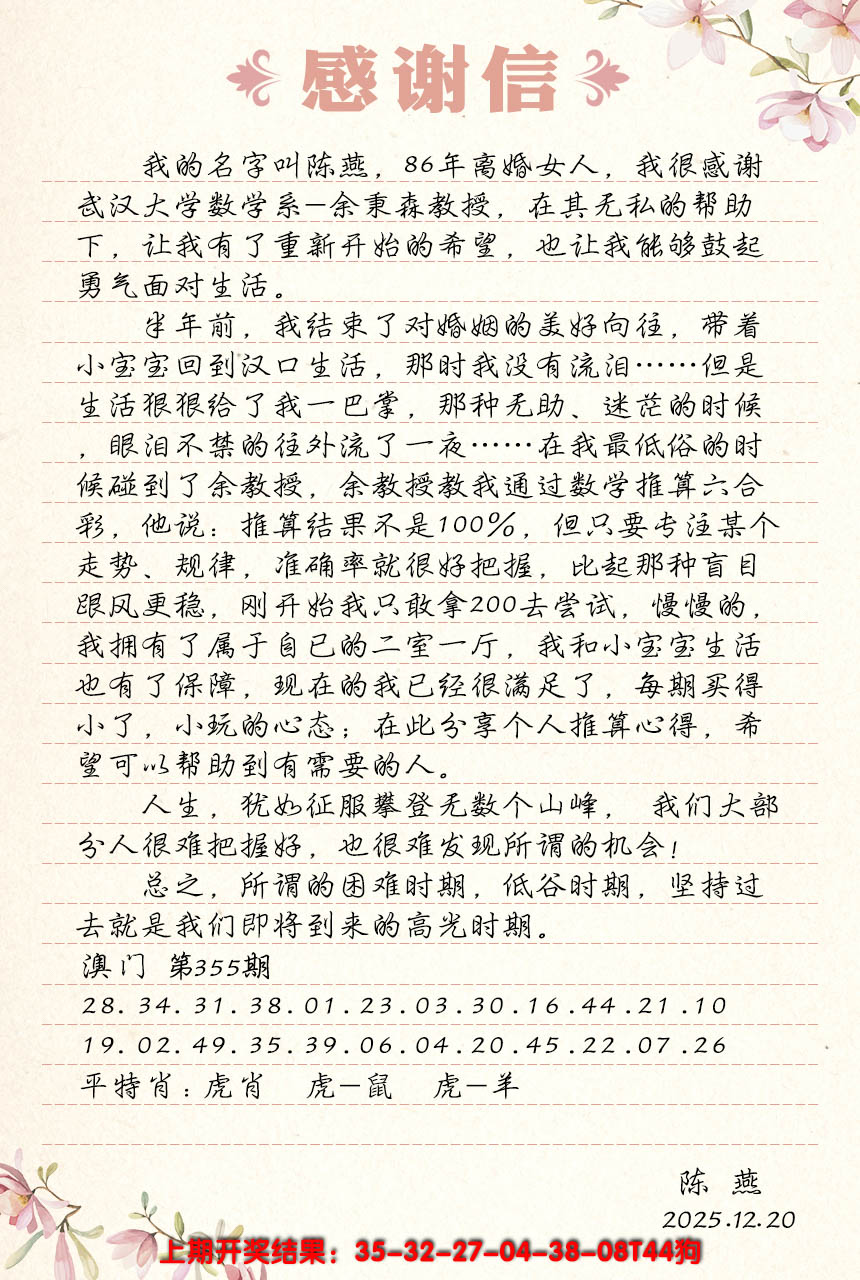 感谢信
我的名字叫陈燕，86年离婚女人，我很感谢
武汉大学数学系—余秉森教授，在其无私的帮助
下，让我有了重新开始的希望，也让我能够鼓起
勇气面对生活。
半年前，我结束了对婚姻的美好向往，带着
小宝宝回到汉口生活，那时我没有流泪……但是
生活狠狠给了我一巴掌，那种无助、迷茫的时候
，眼泪不禁的往外流了一夜……在我最低俗的时
候碰到了余教授，余教授教我通过数学推算六合
彩，他说：推算结果不是100%，但只要专注某个
走势、规律，准确率就很好把握，比起那种盲目
跟风更稳，刚开始我只敢拿200去尝试，慢慢的，
我拥有了属于自已的二室一厅，我和小宝宝生活
也有了保障，现在的我已经很满足了，每期买得
小了，小玩的心态；在此分享个人推算心得，希
望可以帮助到有需要的人。
人生，犹如征服攀登无数个山峰， 我们大部
分人很难把握好，也很难发现所谓的机会！
总之，所谓的困难时期，低谷时期，坚持过
去就是我们即将到来的高光时期。
澳门 第355期
28.34.31.38.01.23.03.30.16.44.21.10
19.02.49.35.39.06.04.20.45.22.07.26
平特肖：虎肖 虎—鼠 虎—羊
陈 燕
2025.12.20
上期开奖结果：35-32-27-04-38-08T44狗